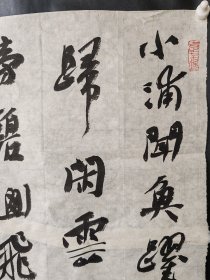 小浦聞魚躍
歸閑雲
傍碧山飛